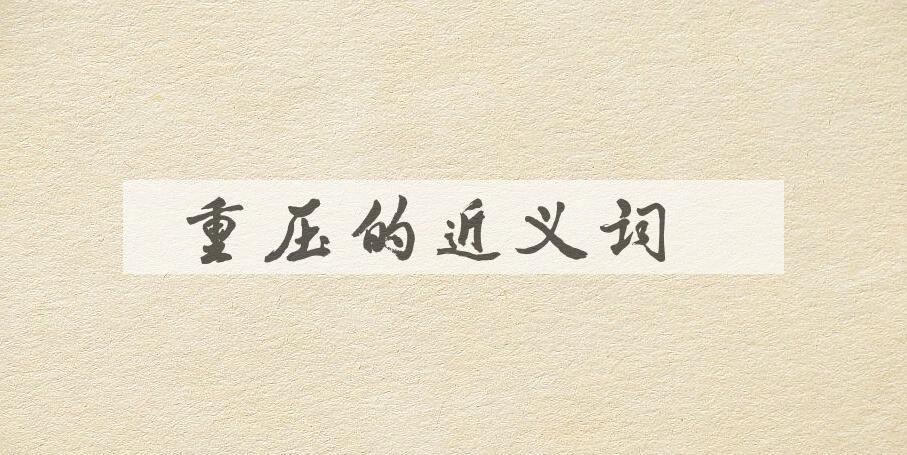 重压的近义词